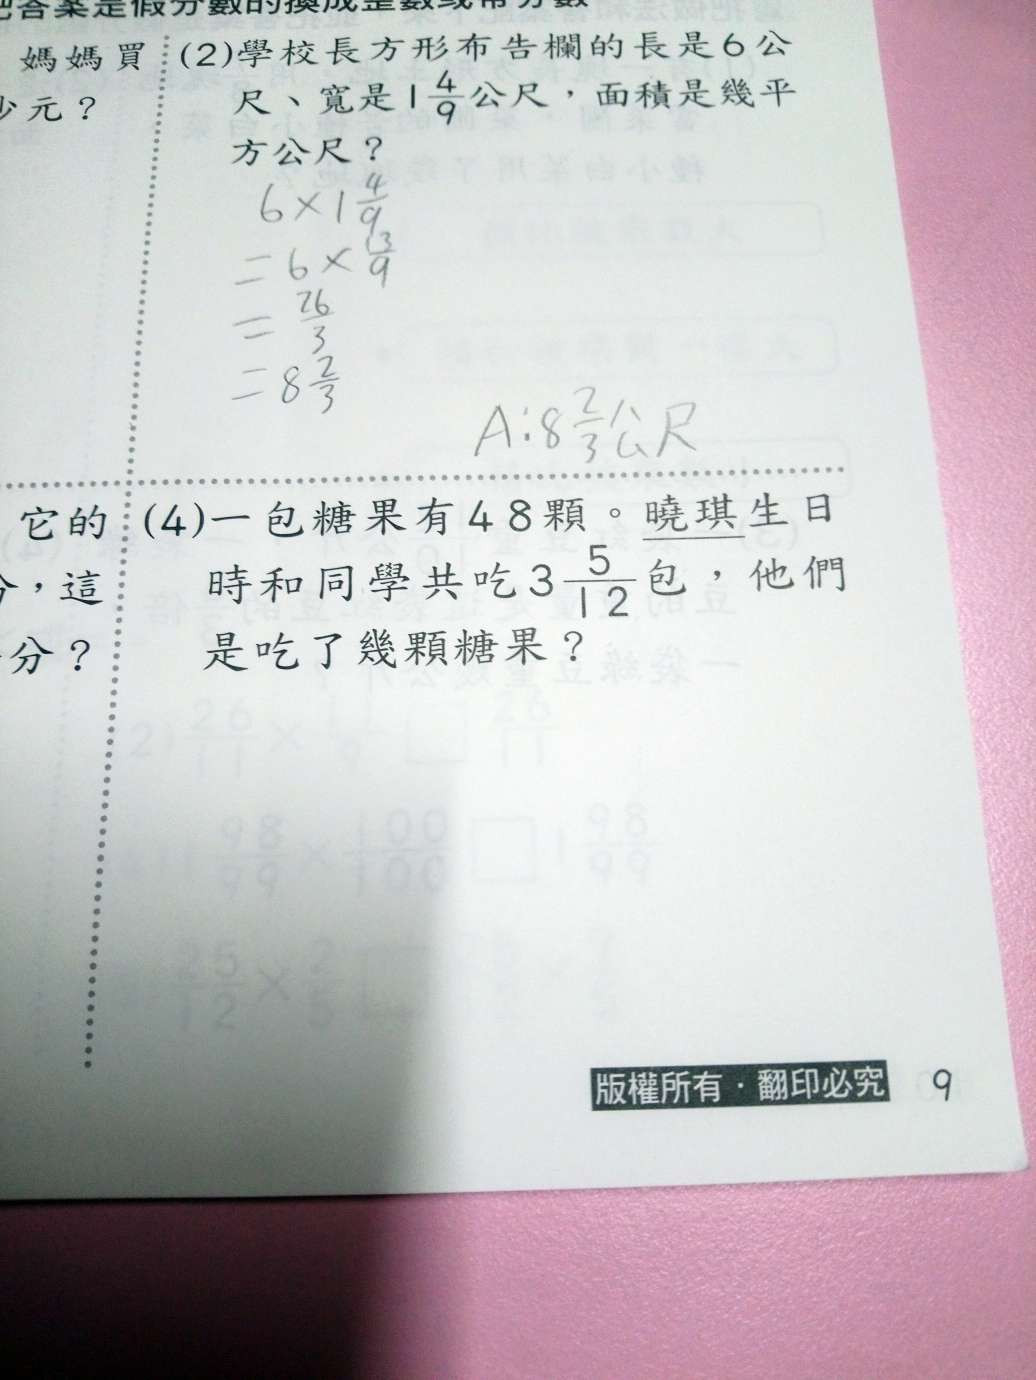 把答案是假分數的換成整數或帶分數
媽媽買
少元？
(2)學校長方形布告欄的長是6公
尺、寬是1 4/9 公尺，面積是幾平
方公尺？
6×1 4/9
=6×13/9
=26/3
=8 2/3
A:8 2/3 公尺
它的
分，這
分？
(4)一包糖果有48顆。曉琪生日
時和同學共吃3 5/12 包，他們
是吃了幾顆糖果？
版權所有·翻印必究 9